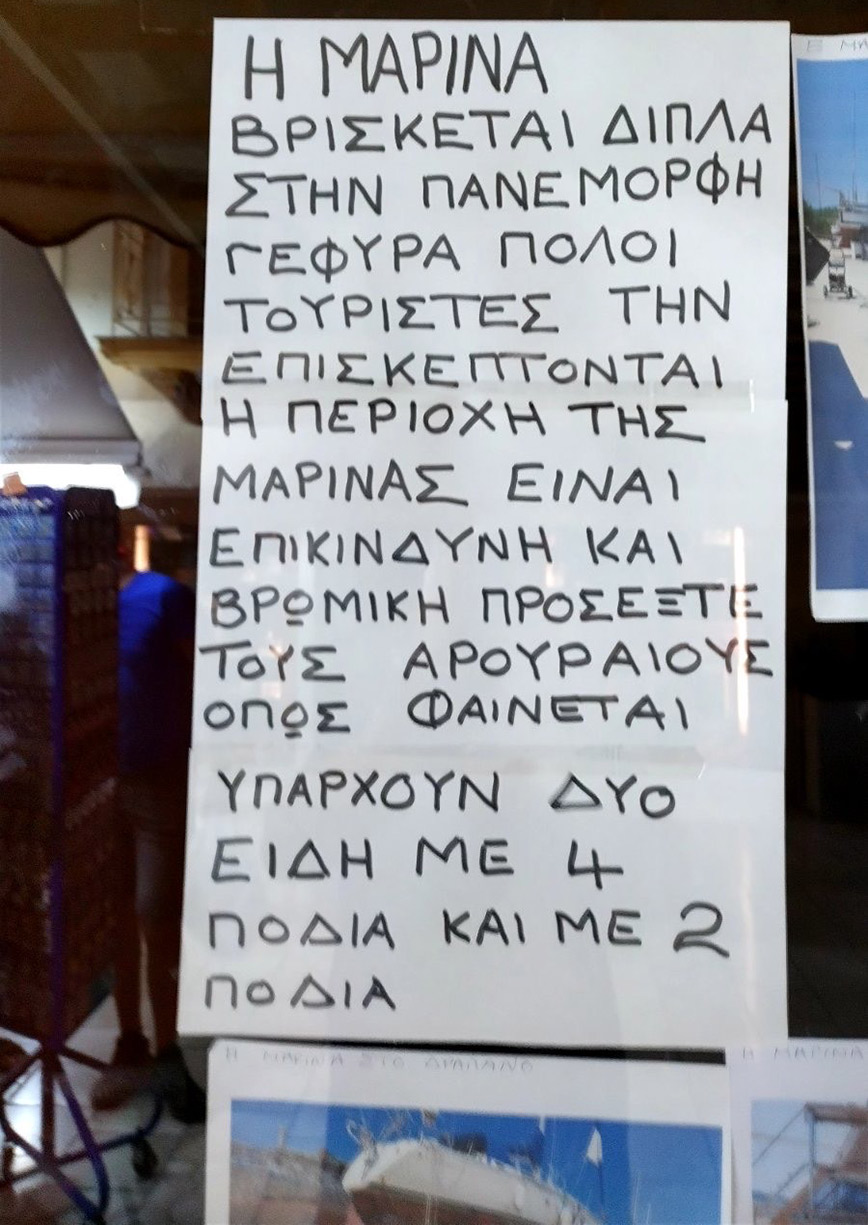 Η ΜΑΡΙΝΑ
ΒΡΙΣΚΕΤΑΙ ΔΙΠΛΑ
ΣΤΗΝ ΠΑΝΕΜΟΡΦΗ
ΓΕΦΥΡΑ ΠΟΛΟΙ
ΤΟΥΡΙΣΤΕΣ ΤΗΝ
ΕΠΙΣΚΕΠΤΟΝΤΑΙ
Η ΠΕΡΙΟΧΗ ΤΗΣ
ΜΑΡΙΝΑΣ ΕΙΝΑΙ
ΕΠΙΚΙΝΔΥΝΗ ΚΑΙ
ΒΡΩΜΙΚΗ ΠΡΟΣΕΞΤΕ
ΤΟΥΣ ΑΡΟΥΡΑΙΟΥΣ
ΟΠΩΣ ΦΑΙΝΕΤΑΙ
ΥΠΑΡΧΟΥΝ ΔΥΟ
ΕΙΔΗ ΜΕ 4
ΠΟΔΙΑ ΚΑΙ ΜΕ 2
ΠΟΔΙΑ
Η ΜΑΡΙΝΑ ΣΤΟ ΔΡΑΠΑΝΟ
Η ΜΑΡΙΝΑ